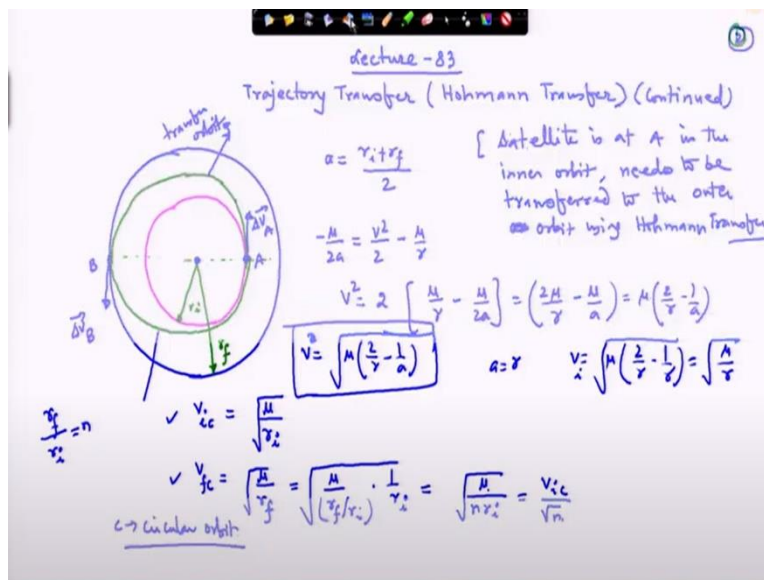 Lecture-83
Trajectory Transfer (Hohmann Transfer) (Continued)
transfer orbit
a = (ri+rf)/2
[Satellite is at A in the
inner orbit, needs to be
transferred to the outer
orbit using Hohmann Transfer
ΔV⃗A
B
A
ri
rf
ΔV⃗B
-μ/2a = v²/2 - μ/r
V² = 2 [μ/r - μ/2a] = (2μ/r - μ/a) = μ(2/r - 1/a)
V = √(μ(2/r - 1/a))
a=r
Vi = √(μ(2/r - 1/r)) = √(μ/r)
rf/ri = n
✓ Vic = √(μ/ri)
✓ Vfc = √(μ/rf) = √(μ/(rf/ri) · 1/ri) = √(μ/nri) = Vic/√n
c→ circular orbit